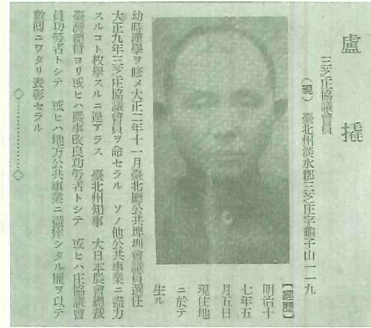 盧　撓
三芝庄協議會員
（現）臺北州淡水郡三芝庄字錫子山一一九
【經歷】
明治十
七年五
月五日
現住地
ニ於テ
生ル
幼時漢學ヲ修メ大正二年十一月臺北廳公共埤圳會議員選任
大正九年三芝庄協議會員ヲ命セラル　ソノ他公共事業ニ盡力
スルコト枚擧スルニ遑アラス　臺北州知事　大日本農會總裁
臺灣總督ヨリ或ヒハ農事改良功勞者トシテ　或ヒハ庄協議會
員功勞者トシテ　或ヒハ地方公共事業ニ盡瘁シタル廉ヲ以テ
數囘ニワタリ表彰セラル